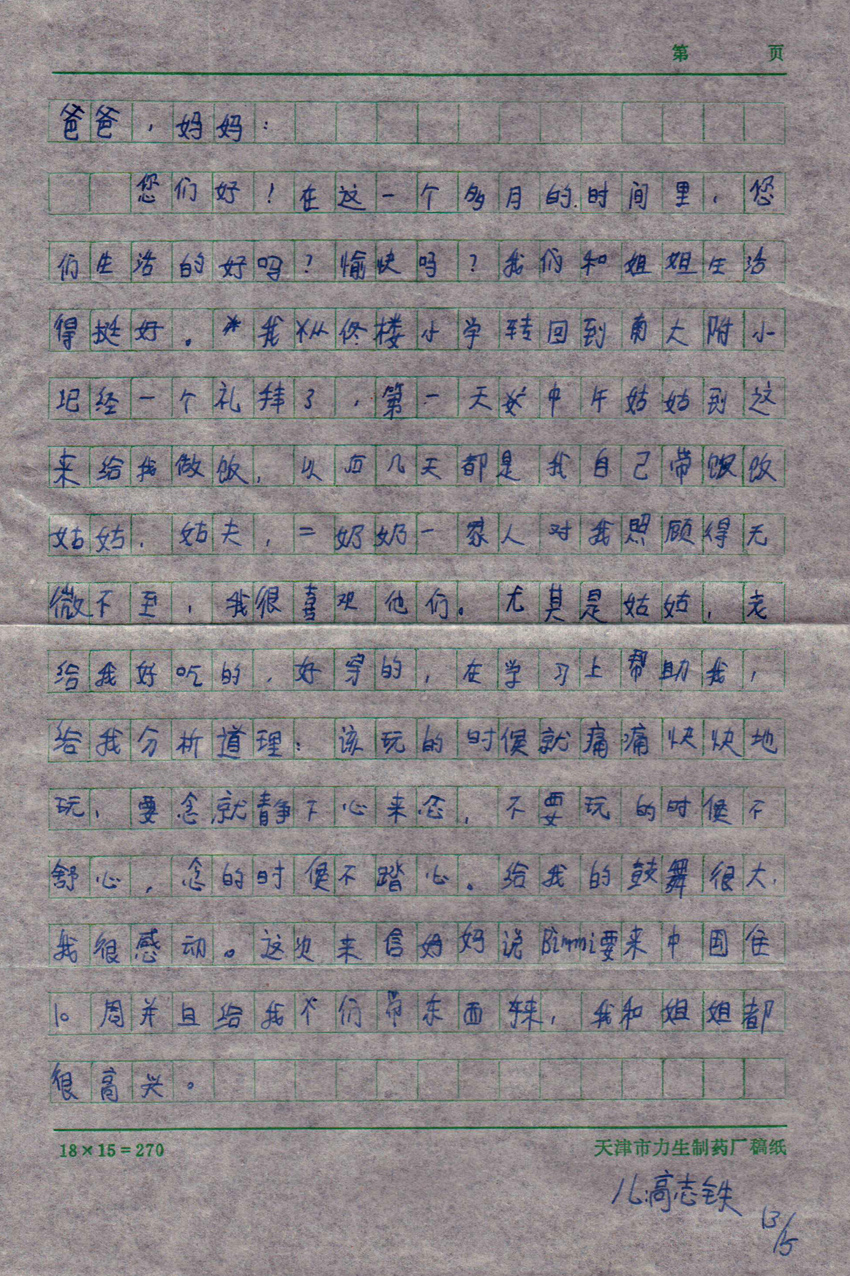 第 页
爸爸，妈妈：
您们好！在这一个多月的时间里，您
们生活的好吗？愉快吗？我们和姐姐生活
得挺好。我从佟楼小学转回到南大附小
已经一个礼拜了，第一天中午姑姑到这
来给我做饭，以后几天都是我自己带饭
姑姑，姑夫，二奶奶一家人对我照顾得无
微不至，我很喜欢他们。尤其是姑姑，老
给我好吃的，好穿的，在学习上帮助我，
给我分析道理：该玩的时候就痛痛快快地
玩，要念就静下心来念，不要玩的时候不
舒心，念的时候不踏心。给我的鼓舞很大，
我很感动。这次来信妈妈说Bimmi要来中国住
10周并且给我们带东西来，我和姐姐都
很高兴。
18×15=270 天津市力生制药厂稿纸
儿：高志铁
13/15